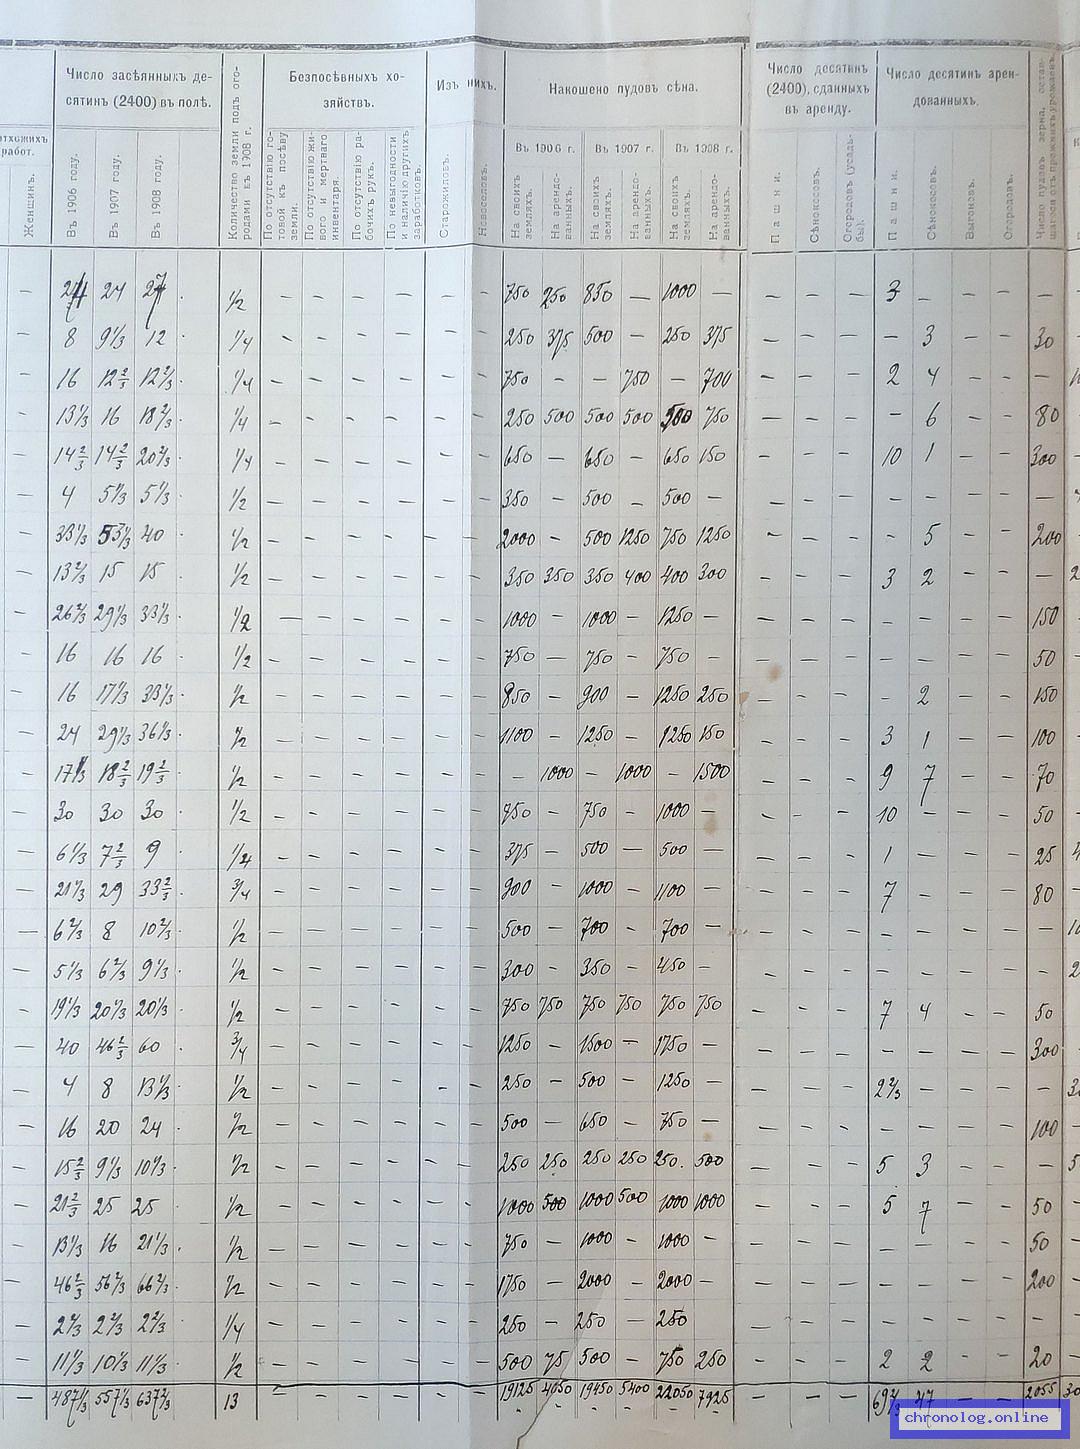 Число засѣянныхъ де-
сятинъ (2400) въ полѣ.
Безпосѣвныхъ хо-
зяйствъ.
Изъ нихъ.
Накошено пудовъ сѣна.
Число десятинъ
(2400), сданныхъ
въ аренду.
Число десятинъ арен-
дованныхъ.
работ.
Женщинъ.
Въ 1906 году.
Въ 1907 году.
Въ 1908 году.
Количество земли подъ ого-
родами въ 1908 г.
По отсутствію го-
товой къ посѣву
земли.
По отсутствію жи-
вого и мертваго
инвентаря.
По отсутствію ра-
бочихъ рукъ.
По невыгодности
и наличію другихъ
заработковъ.
Старожиловъ.
Новоселовъ.
Въ 1906 г.
Въ 1907 г.
Въ 1908 г.
На своихъ
земляхъ.
На арендо-
ванныхъ.
На своихъ
земляхъ.
На арендо-
ванныхъ.
На своихъ
земляхъ.
На арендо-
ванныхъ.
Пашни.
Сѣнокосовъ.
Огородовъ (усадь-
бы).
Пашни.
Сѣнокосовъ.
Выгоновъ.
Огородовъ.
Число пудовъ зерна, остав-
шагося отъ прежнихъ урожаевъ.
— 24 24 27 1/2 — — — — — — 750 250 850 — 1000 — — — — 3 — — — —
— 8 9 1/3 12 1/4 — — — — — — 250 375 500 — 250 375 — — — — 3 — — 30
— 16 12 2/3 12 2/3 1/4 — — — — — — 750 — — 750 — 700 — — — 2 4 — — —
— 13 1/3 16 18 2/3 1/4 — — — — — — 250 500 500 500 500 750 — — — — 6 — — 80
— 14 2/3 14 2/3 20 2/3 1/4 — — — — — — 650 — 650 — 650 150 — — — 10 1 — — 300
— 4 5 1/3 5 1/3 1/2 — — — — — — 350 — 500 — 500 — — — — — — — — —
— 33 1/3 53 1/3 40 1/2 — — — — — — 2000 — 500 1250 750 1250 — — — — 5 — — 200
— 13 2/3 15 15 1/2 — — — — — — 350 350 350 400 400 300 — — — 3 2 — — —
— 26 2/3 29 1/3 33 1/3 1/2 — — — — — — 1000 — 1000 — 1250 — — — — — — — — 150
— 16 16 16 1/2 — — — — — — 750 — 750 — 750 — — — — — — — — 50
— 16 17 1/3 33 1/3 1/2 — — — — — — 850 — 900 — 1250 250 — — — — 2 — — 150
— 24 29 1/3 36 1/3 1/2 — — — — — — 1100 — 1250 — 1250 150 — — — 3 1 — — 100
— 17 1/3 18 2/3 19 2/3 1/2 — — — — — — — 1000 — 1000 — 1500 — — — 9 7 — — 70
— 30 30 30 1/2 — — — — — — 750 — 750 — 1000 — — — — 10 — — — 50
— 6 1/3 7 2/3 9 1/4 — — — — — — 375 — 500 — 500 — — — — 1 — — — 25
— 21 1/3 29 33 2/3 3/4 — — — — — — 900 — 1000 — 1100 — — — — 7 — — — 80
— 6 2/3 8 10 2/3 1/2 — — — — — — 500 — 700 — 700 — — — — — — — — —
— 5 1/3 6 2/3 9 1/3 1/2 — — — — — — 300 — 350 — 450 — — — — — — — — —
— 19 1/3 20 1/3 20 1/3 1/2 — — — — — — 750 750 750 750 750 750 — — — 7 4 — — 50
— 40 46 2/3 60 3/4 — — — — — — 1250 — 1500 — 1750 — — — — — — — — 300
— 4 8 13 1/3 1/2 — — — — — — 250 — 500 — 1250 — — — — 2 2/3 — — — —
— 16 20 24 1/2 — — — — — — 500 — 650 — 750 — — — — — — — — 100
— 15 2/3 9 1/3 10 1/3 1/2 — — — — — — 250 250 250 250 250 500 — — — 5 3 — — —
— 21 2/3 25 25 1/2 — — — — — — 1000 500 1000 500 1000 1000 — — — 5 7 — — 50
— 13 1/3 16 21 1/3 1/2 — — — — — — 750 — 1000 — 1000 — — — — — — — — 50
— 46 2/3 56 2/3 66 2/3 1/2 — — — — — — 1750 — 2000 — 2000 — — — — — — — — 200
— 2 2/3 2 2/3 2 2/3 1/4 — — — — — — 250 — 250 — 250 — — — — — — — —
— 11 1/3 10 1/3 11 1/3 1/2 — — — — — — 500 75 500 — 750 250 — — — 2 2 — — 20
— 487 1/3 557 1/3 637 2/3 13 — — — — — — 19125 4050 19450 5400 22050 7925 — — — 69 2/3 47 — — 2055
chronolog.online